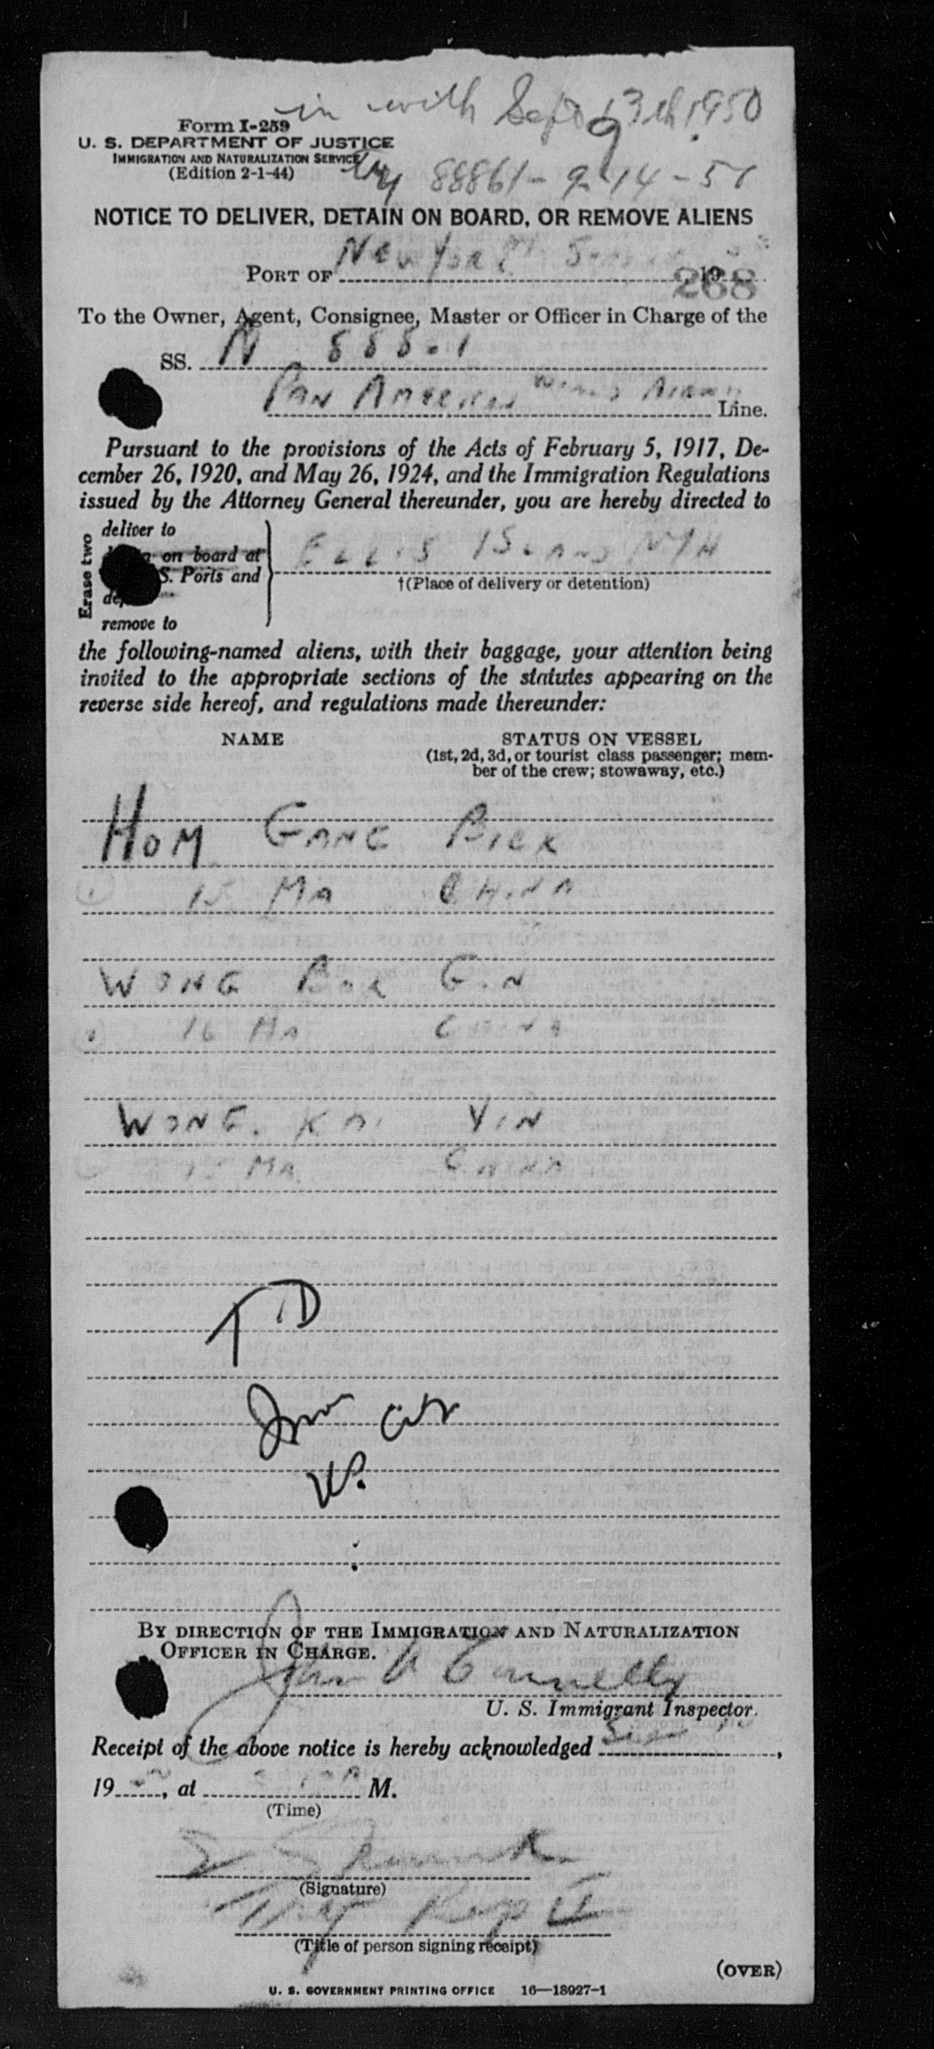 in with Sept 13th 1950
Form I-259
U. S. DEPARTMENT OF JUSTICE
IMMIGRATION AND NATURALIZATION SERVICE
(Edition 2-1-44)
88861-9-14-51
NOTICE TO DELIVER, DETAIN ON BOARD, OR REMOVE ALIENS
PORT OF New York 19
268
To the Owner, Agent, Consignee, Master or Officer in Charge of the
SS. N
PAN AMERICAN WORLD Line.
Pursuant to the provisions of the Acts of February 5, 1917, De-
cember 26, 1920, and May 26, 1924, and the Immigration Regulations
issued by the Attorney General thereunder, you are hereby directed to
Erase two
deliver to
on board at
S. Ports and
remove to
ELLIS ISLAND NYH
†(Place of delivery or detention)
the following-named aliens, with their baggage, your attention being
invited to the appropriate sections of the statutes appearing on the
reverse side hereof, and regulations made thereunder:
NAME STATUS ON VESSEL
(1st, 2d, 3d, or tourist class passenger; mem-
ber of the crew; stowaway, etc.)
HOM GANG BICK
15 MA CHINA
WONG BOK GIN
16 MA CHINA
WONG. KAI YIN
15 MA CHINA
TD
By direction of the Immigration and Naturalization
Officer in Charge.
John A Connelly
U. S. Immigrant Inspector.
Receipt of the above notice is hereby acknowledged
19 , at M.
(Time)
(Signature)
(Title of person signing receipt)
(OVER)
U. S. GOVERNMENT PRINTING OFFICE 16—18927-1